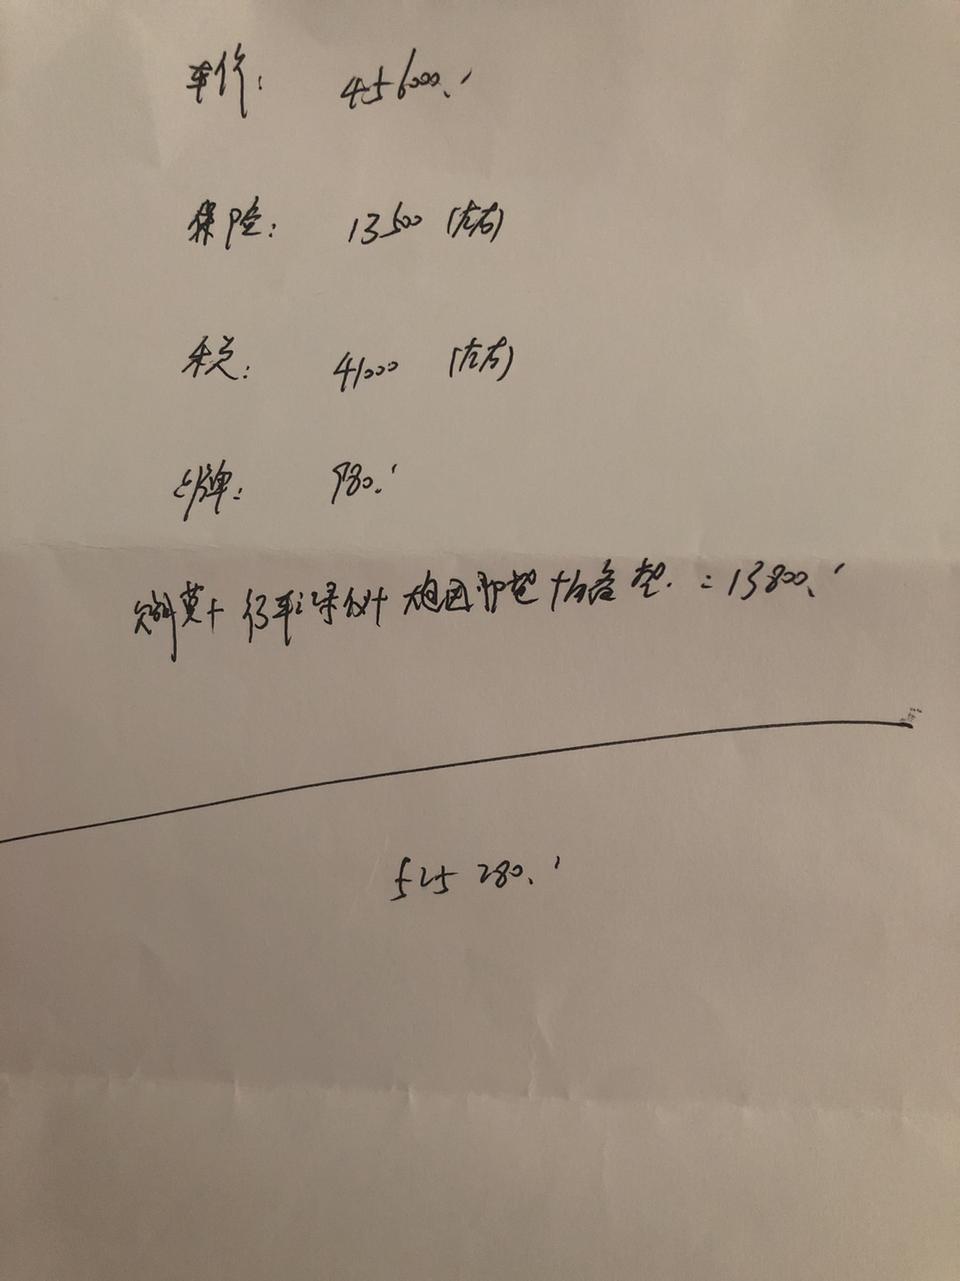 车价: 456000.
保险: 13500 (左右)
税: 41000 (左右)
上牌: 980.
贴膜+行车记录仪+大包围脚垫+后备垫. = 13800.
525280.